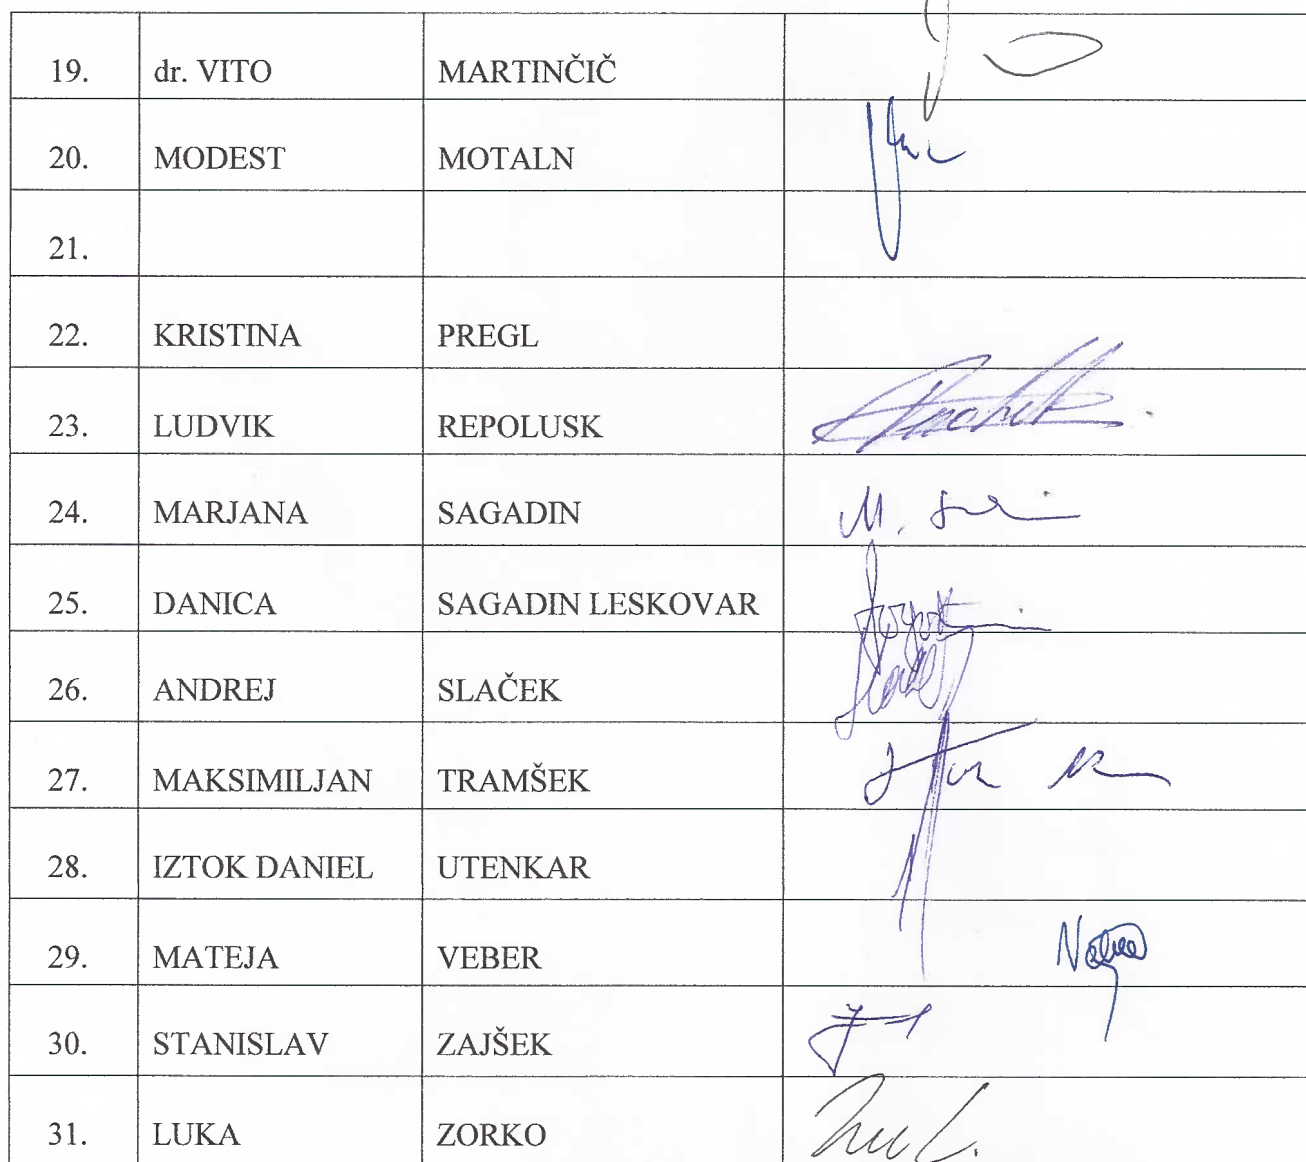 19. dr. VITO MARTINČIČ
20. MODEST MOTALN
21.
22. KRISTINA PREGL
23. LUDVIK REPOLUSK
24. MARJANA SAGADIN M.
25. DANICA SAGADIN LESKOVAR
26. ANDREJ SLAČEK
27. MAKSIMILJAN TRAMŠEK
28. IZTOK DANIEL UTENKAR
29. MATEJA VEBER
30. STANISLAV ZAJŠEK
31. LUKA ZORKO